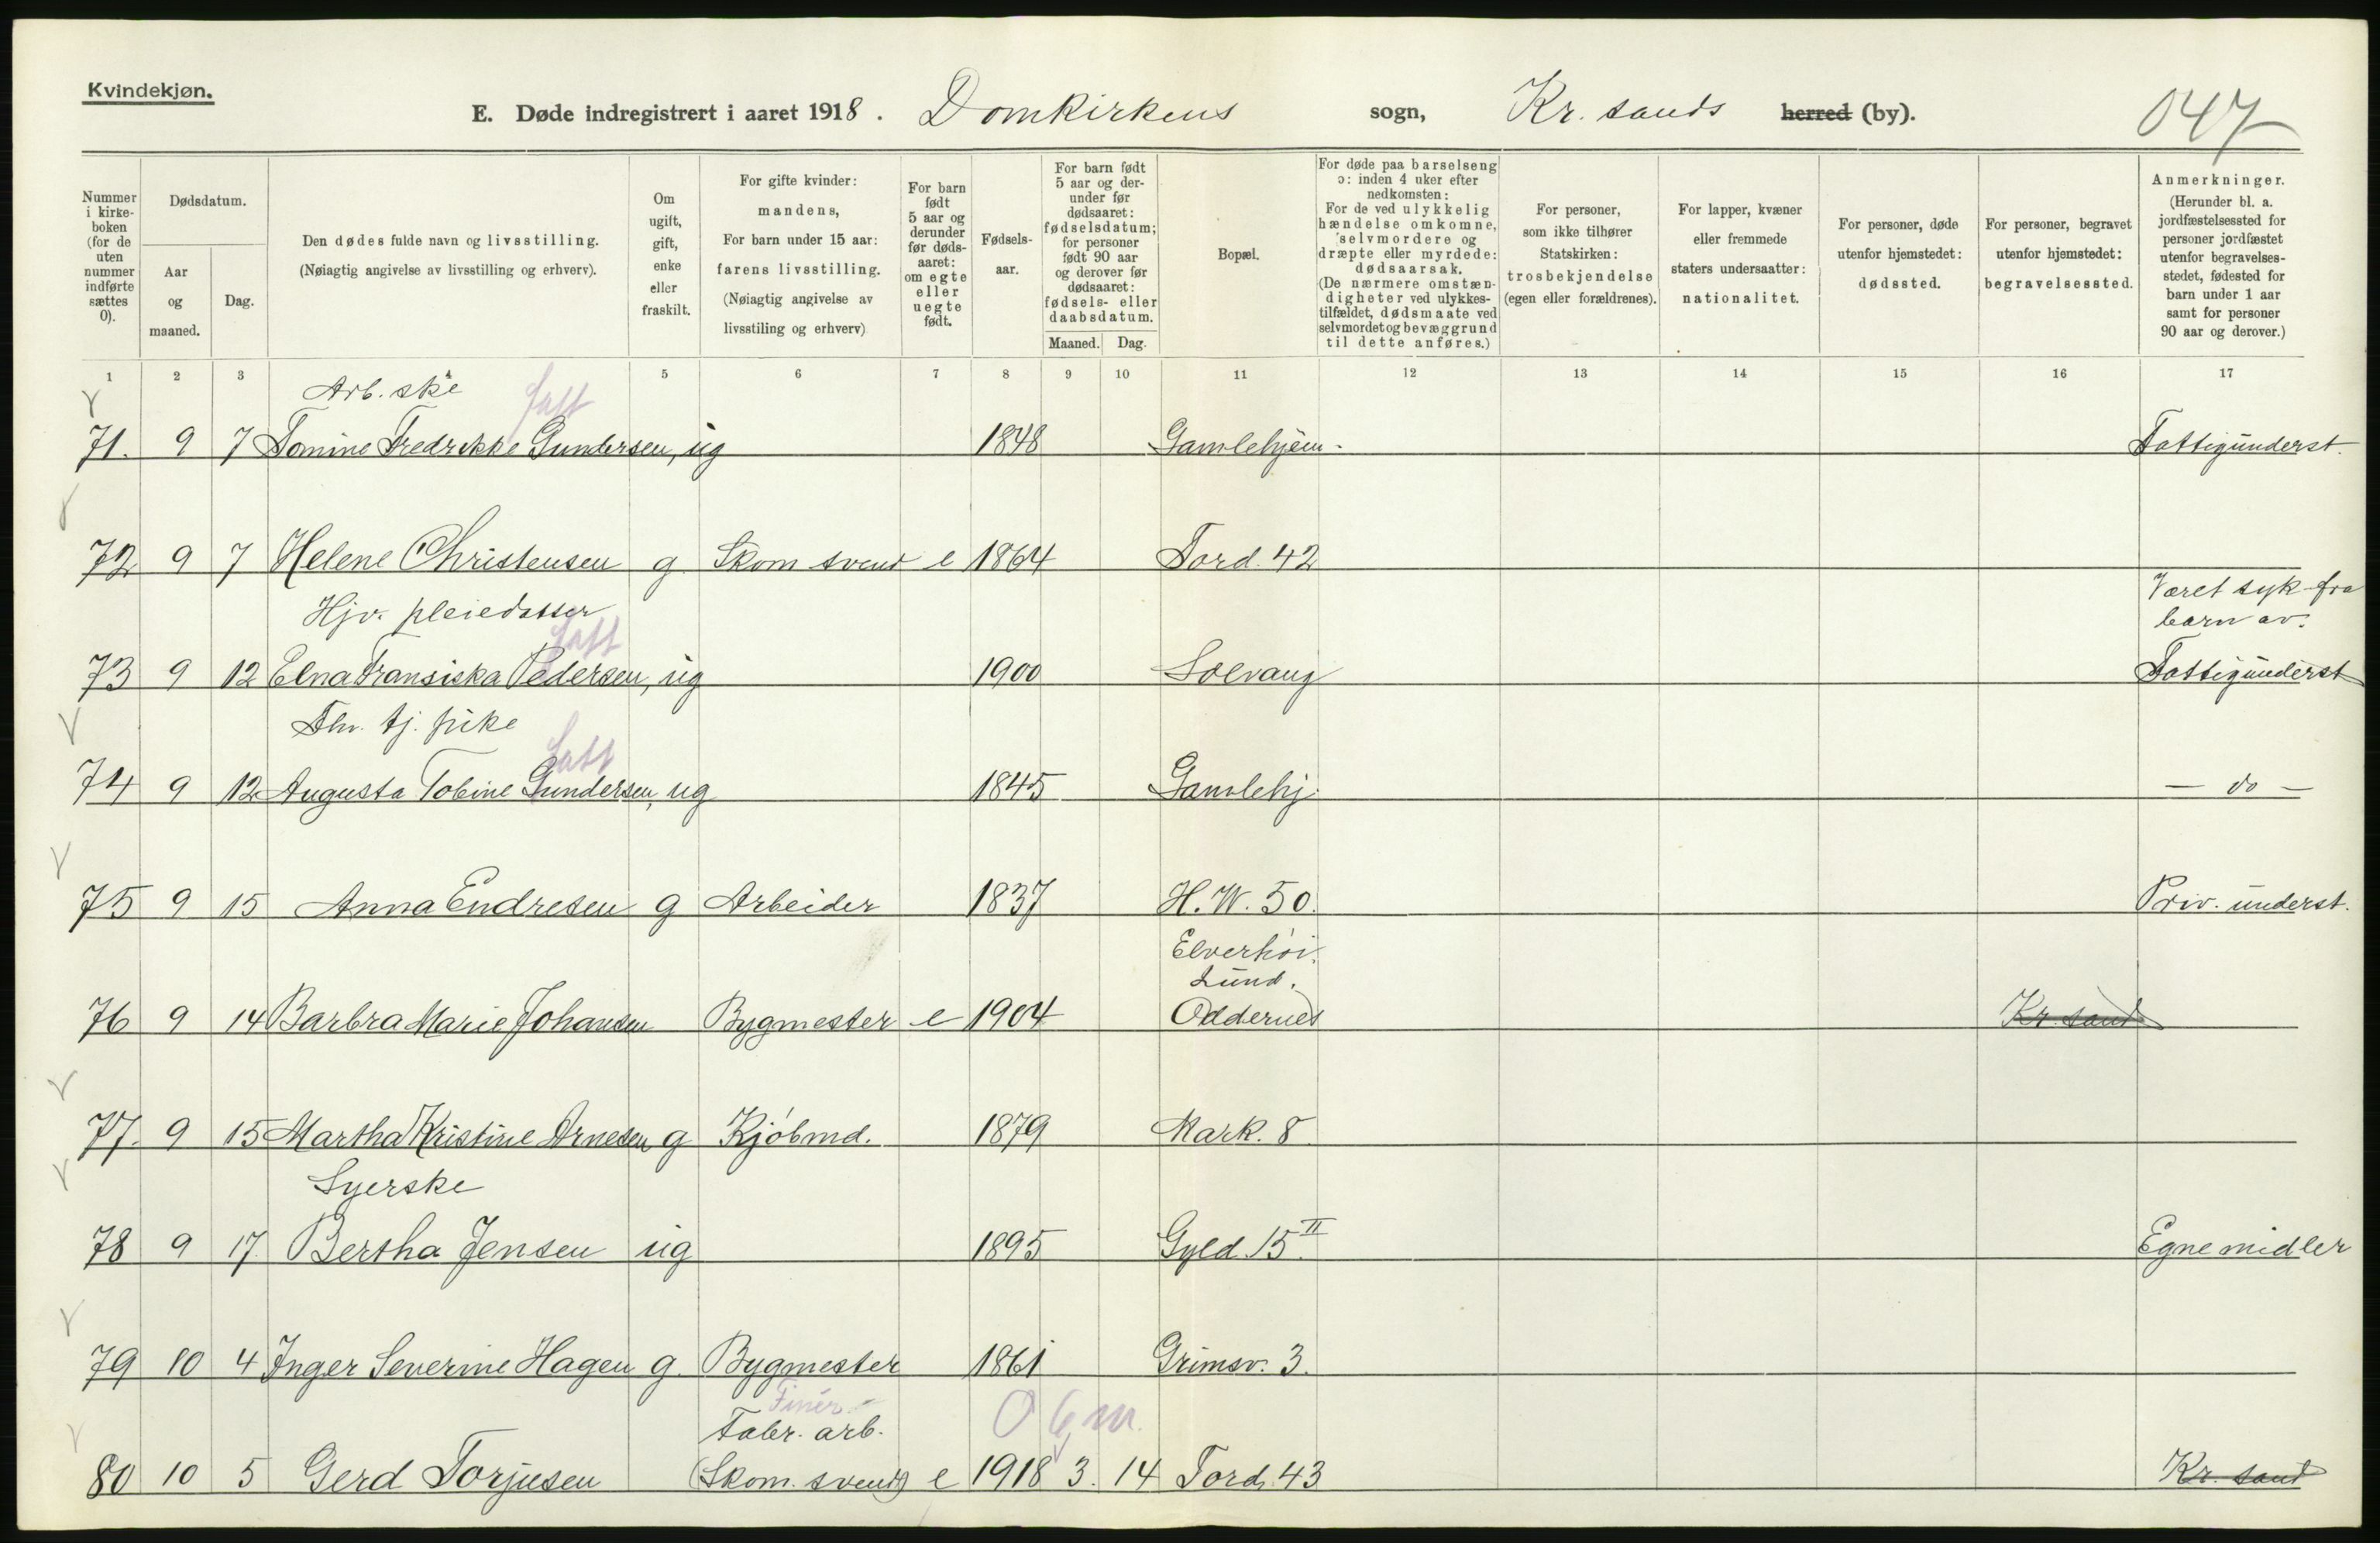 Kvindekjøn.
E. Døde indregistrert i aaret 1918. Domkirkens sogn, Kr. sands herred (by). 047
Nummer i kirkeboken (for de uten nummer indførte sættes 0).
Dødsdatum.
Aar og maaned.
Dag.
Den dødes fulde navn og livsstilling.
(Nøiagtig angivelse av livsstilling og erhverv).
Om ugift, gift, enke eller fraskilt.
For gifte kvinder: mandens,
For barn under 15 aar: farens livsstilling.
(Nøiagtig angivelse av livsstiling og erhverv)
For barn født 5 aar og derunder før dødsaaret: om egte eller uegte født.
Fødselsaar.
For barn født 5 aar og derunder før dødsaaret: fødselsdatum; for personer født 90 aar og derover før dødsaaret: fødsels- eller daabsdatum.
Maaned. Dag.
Bopæl.
For døde paa barselseng ɔ: inden 4 uker efter nedkomsten:
For de ved ulykkelig hændelse omkomne, selvmordere og dræpte eller myrdede: dødsaarsak.
(De nærmere omstændigheter ved ulykkestilfældet, dødsmaate ved selvmordet og bevæggrund til dette anføres.)
For personer, som ikke tilhører Statskirken: trosbekjendelse (egen eller forældrenes).
For lapper, kvæner eller fremmede staters undersaatter: nationalitet.
For personer, døde utenfor hjemstedet: dødssted.
For personer, begravet utenfor hjemstedet: begravelsessted.
Anmerkninger.
(Herunder bl. a. jordfæstelsessted for personer jordfæstet utenfor begravelsesstedet, fødested for barn under 1 aar samt for personer 90 aar og derover.)
1 2 3 4 5 6 7 8 9 10 11 12 13 14 15 16 17
Arb. ske
71. 9 7 Tomine Fredrikke Gundersen, ug 1848 Gamlehjem. Fattigunderst.
72 9 7 Helene Christensen g. Skom svend e 1864 Tord. 42
Hjv. pleiedatter Været syk fra
barn av.
73 9 12 Elna Fransiska Pedersen, ug 1900 Solvang Fattigunderst
Fhv. tj. pike
74 9 12 Augusta Tobine Gundersen, ug 1845 Gamlehj. — do —
75 9 15 Anna Endresen g Arbeider 1837 H. W. 50. Priv. underst.
Elverhöi.
Lund.
76 9 14 Barbra Marie Johansen Bygmester e 1904 Oddernes Kr. sand
77. 9 15 Martha Kristine Arnesen g Kjöbmd. 1879 Mark. 8
Syerske
78 9 17. Bertha Jensen ug 1895 Gyld. 15 II. Egne midler
79 10 4 Inger Severine Hagen g. Bygmester 1861 Grimsv. 3.
Finér
Fabr. arb. 0 6 m.
80 10 5 Gerd Torjusen (Skom. svend) e 1918 3. 14 Tord. 43 Kr. sand